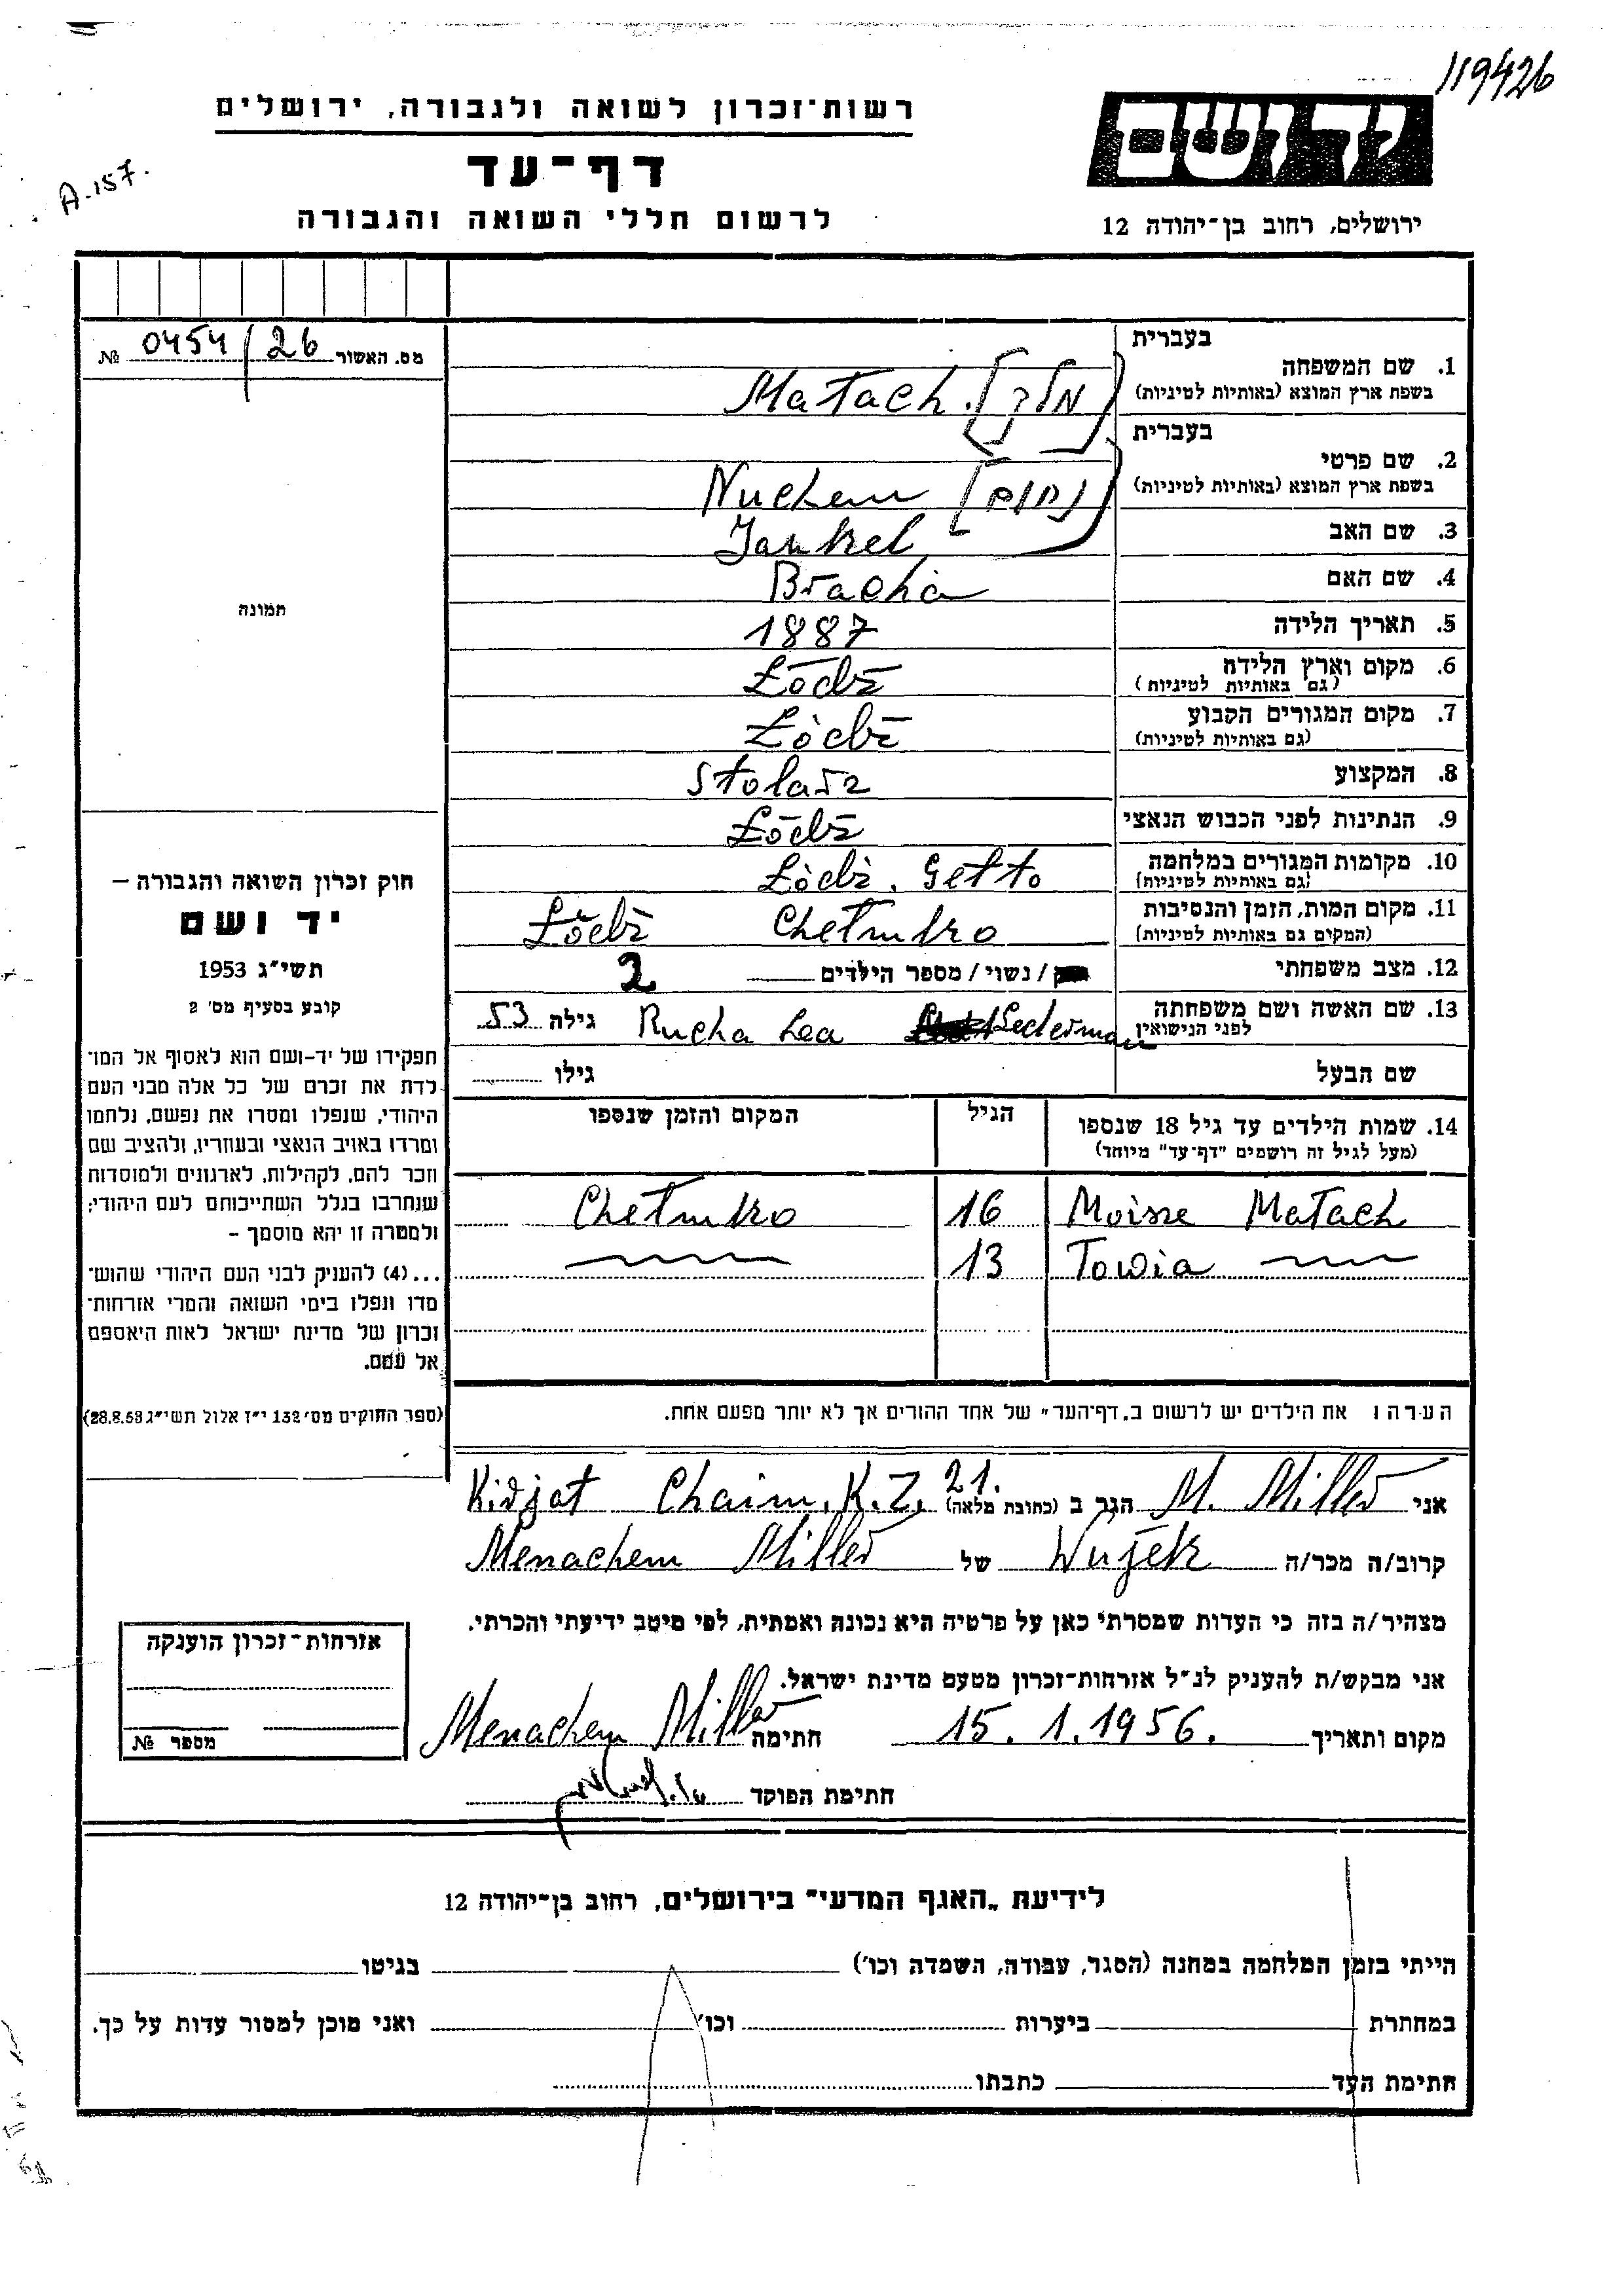 119426
רשות־זכרון לשואה ולגבורה, ירושלים
יד ושם
דף־עד
A-157.
לרשום חללי השואה והגבורה
ירושלים, רחוב בן־יהודה 12
מס. האשור 0454/26 №
בעברית
1. שם המשפחה
בשפת ארץ המוצא (באותיות לטיניות) Małach. [מלך]
בעברית
2. שם פרטי
בשפת ארץ המוצא (באותיות לטיניות) Nuchem [נחום]
3. שם האב Jankel
4. שם האם Bracha
5. תאריך הלידה 1887
6. מקום וארץ הלידה Łódź
(גם באותיות לטיניות)
7. מקום המגורים הקבוע Łódź
(גם באותיות לטיניות)
8. המקצוע Stolarz
9. הנתינות לפני הכבוש הנאצי Łódź
10. מקומות המגורים במלחמה Łódź. Getto
(גם באותיות לטיניות)
11. מקום המות, הזמן והנסיבות Łódź Chełmno
(המקום גם באותיות לטיניות)
12. מצב משפחתי / נשוי / מספר הילדים 2
13. שם האשה ושם משפחתה Rucha Lea Lederman גילה 53
לפני הנישואין
שם הבעל גילו
14. שמות הילדים עד גיל 18 שנספו הגיל המקום והזמן שנספו
(מעל לגיל זה רושמים "דף־עד" מיוחד)
Moisze Małach 16 Chełmno
Towia 13
הערה: את הילדים יש לרשום ב„דף־העד" של אחד ההורים אך לא יותר מפעם אחת.
תמונה
חוק זכרון השואה והגבורה –
יד ושם
תשי"ג 1953
קובע בסעיף מס' 2
תפקידו של יד-ושם הוא לאסוף אל המו־
לדת את זכרם של כל אלה מבני העם
היהודי, שנפלו ומסרו את נפשם, נלחמו
ומרדו באויב הנאצי ובעוזריו, ולהציב שם
וזכר להם, לקהילות, לארגונים ולמוסדות
שנחרבו בגלל השתייכותם לעם היהודי;
ולמטרה זו יהא מוסמך –
...(4) להעניק לבני העם היהודי שהוש־
מדו ונפלו בימי השואה והמרי אזרחות־
זכרון של מדינת ישראל לאות היאספם
אל עמם.
(ספר החוקים מס' 132 י"ז אלול תשי"ג 28.8.53)
אני M. Miller הגר ב (כתובת מלאה) Kirjat Chaim. K.Z. 21.
קרוב/ה מכר/ה Wujek של Menachem Miller
מצהיר/ה בזה כי העדות שמסרתי כאן על פרטיה היא נכונה ואמתית, לפי מיטב ידיעתי והכרתי.
אני מבקש/ת להעניק לנ"ל אזרחות־זכרון מטעם מדינת ישראל.
מקום ותאריך 15. 1. 1956. חתימה Menachem Miller
חתימת הפוקד
אזרחות־זכרון הוענקה
מספר №
לידיעת „האגף המדעי" בירושלים, רחוב בן־יהודה 12
הייתי בזמן המלחמה במחנה (הסגר, עבודה, השמדה וכו') בגיטו
במחתרת ביערות וכו' ואני מוכן למסור עדות על כך.
חתימת העד כתבתו